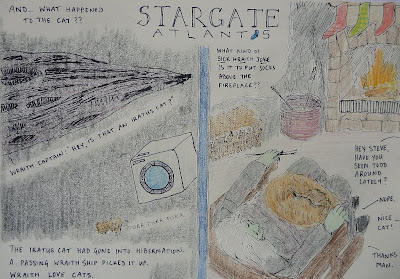 AND... WHAT HAPPENED
TO THE CAT ??
STARGATE
ATLANTIS
WRAITH CAPTAIN: "HEY, IS THAT AN IRATUS CAT?"
THE IRATUS CAT HAD GONE INTO HIBERNATION.
A PASSING WRAITH SHIP PICKED IT UP.
WRAITH LOVE CATS.
WHAT KIND OF
SICK WRAITH JOKE
IS IT TO PUT SOCKS
ABOVE THE
FIREPLACE??
HEY STEVE,
HAVE YOU
SEEN TODD
AROUND
LATELY?
NOPE.
NICE
CAT!
THANKS
MAN.